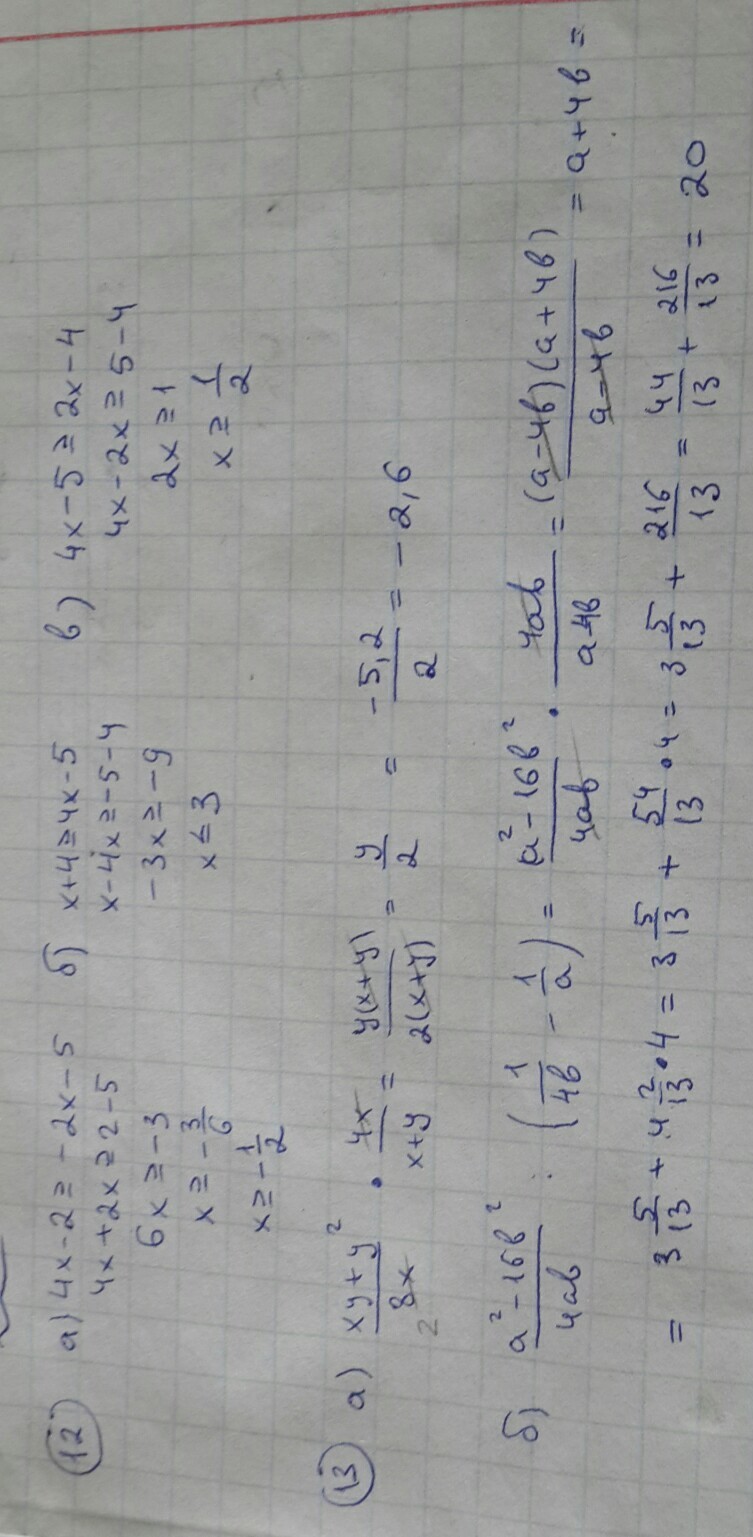 12 а) 4x-2≥-2x-5
4x+2x≥2-5
6x≥-3
x≥-3/6
x≥-1/2
б) x+4≥4x-5
x-4x≥-5-4
-3x≥-9
x≤3
в) 4x-5≥2x-4
4x-2x≥5-4
2x≥1
x≥1/2
13 а) (xy+y²)/(8x) · 4x/(x+y) = y(x+y)/(2(x+y)) = y/2 = -5,2/2 = -2,6
2
б) (a²-16b²)/(4ab) : (1/(4b) - 1/a) = (a²-16b²)/(4ab) · 4ab/(a-4b) = (a-4b)(a+4b)/(a-4b) = a+4b =
= 3 5/13 + 4 2/13·4 = 3 5/13 + 54/13·4 = 3 5/13 + 216/13 = 44/13 + 216/13 = 20